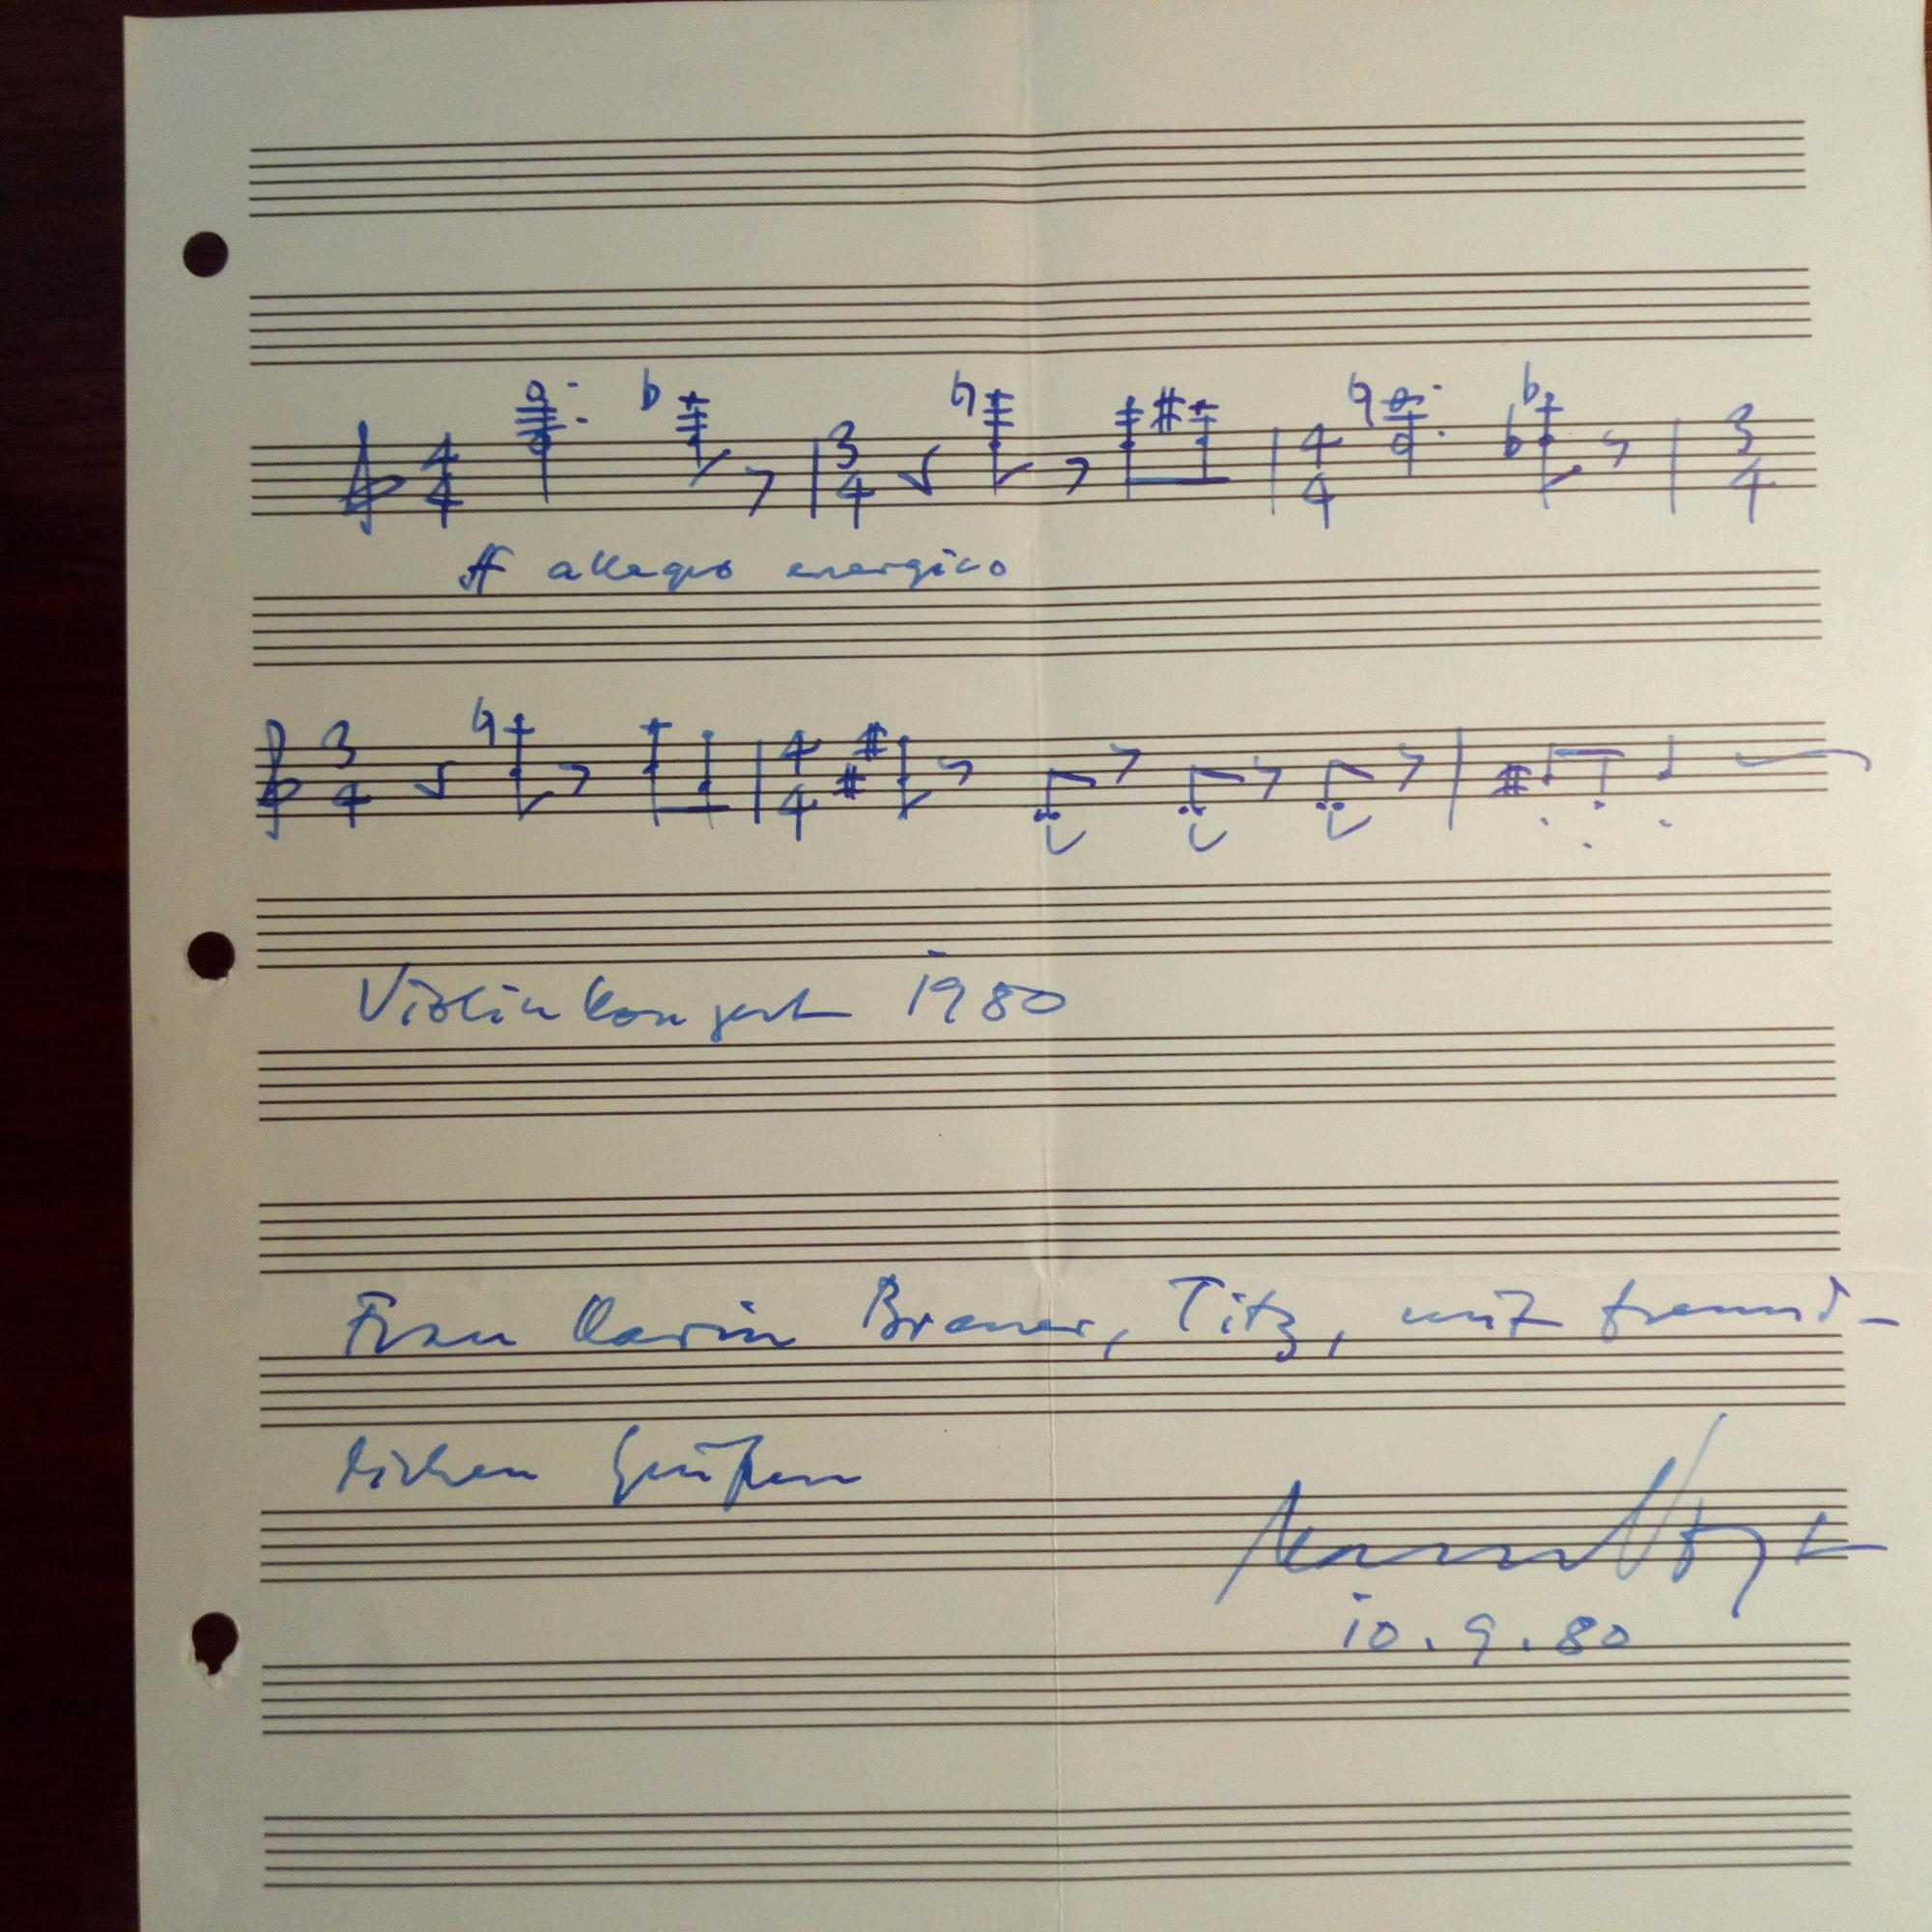 4 4 3 4 4 4 3 4
ff allegro energico
3 4 4 4
Violinkonzert 1980
Frau Karin Brauer, Titz, mit freund-
lichen Grüßen
10.9.80